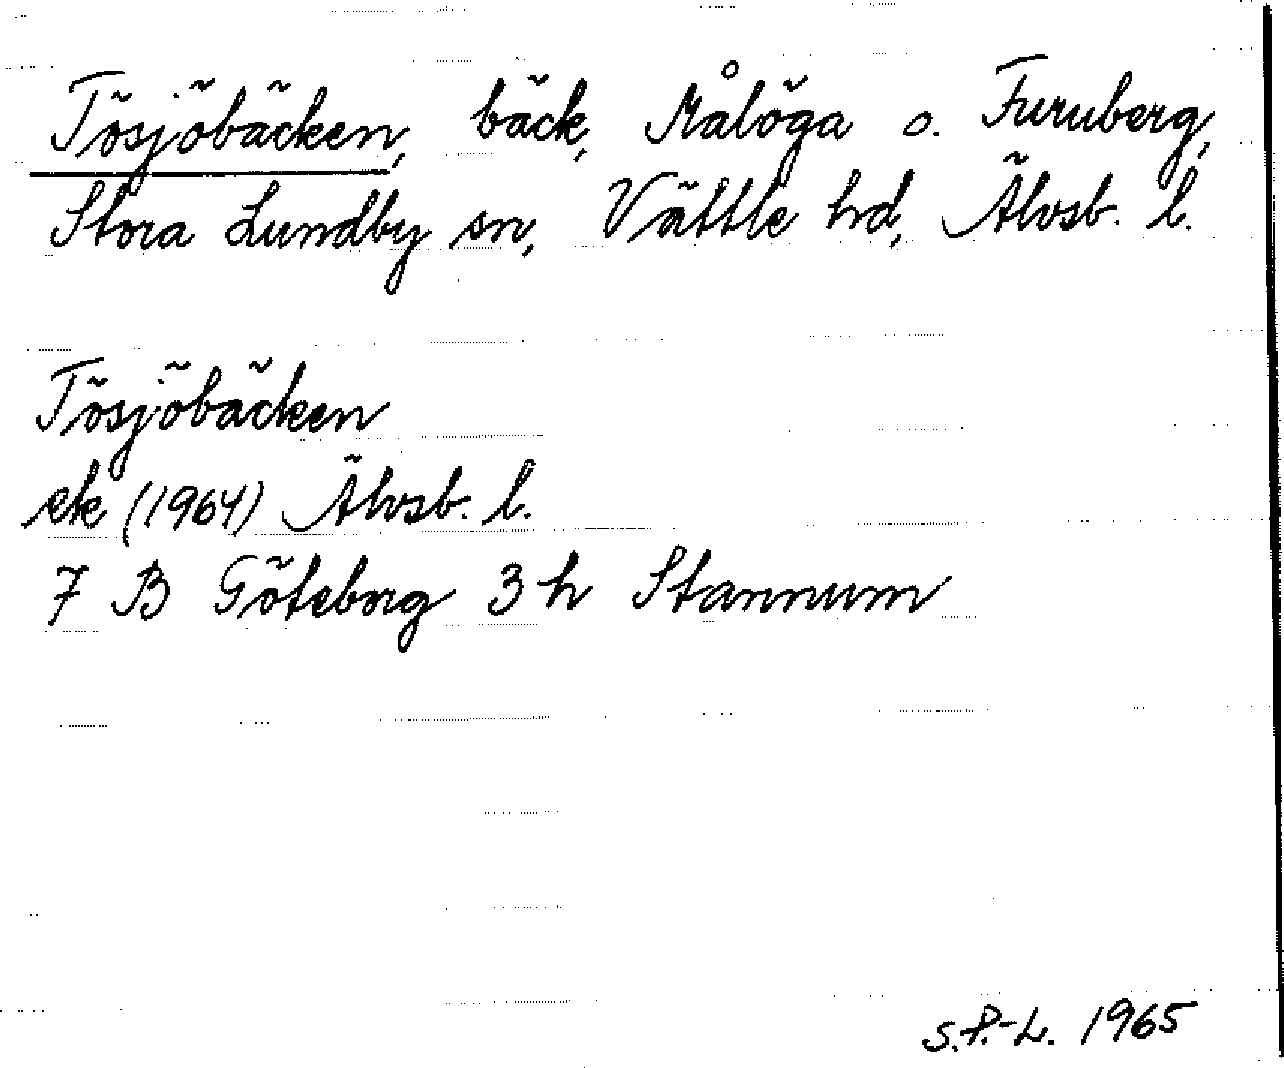 Tösjöbäcken, bäck, Målöga o. Furuberg,
Stora Lundby sn, Vättle hd, Älvsb. l.
Tösjöbäcken
ek (1964) Älvsb. l.
7 B Göteborg 3 h Stannum
S.P.-L. 1965